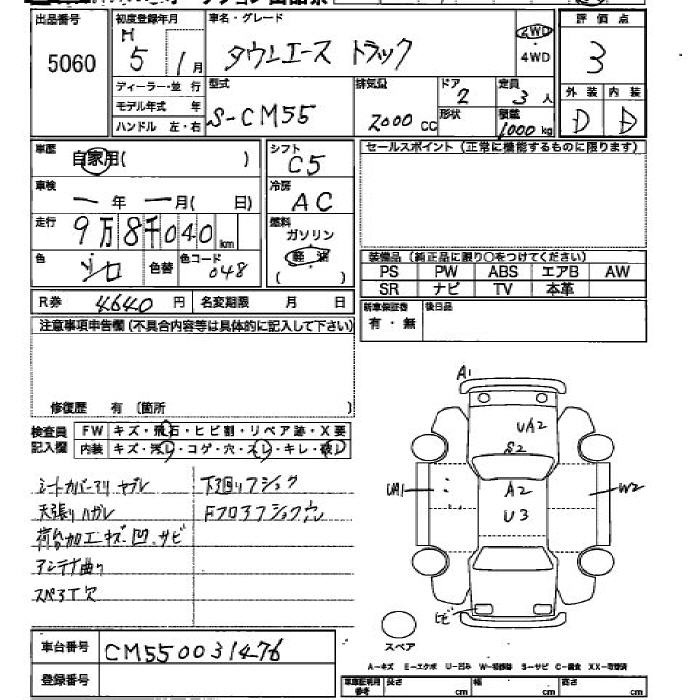 出品番号 5060
初度登録年月 H 5 1月
車名・グレード タウンエース トラック
2WD ・ 4WD
評価点 3
外装 D 内装 D
ディーラー・並行
モデル年式 年
ハンドル 左・右
型式 S-CM55
排気量 2000 CC
ドア 2
形状
定員 3人
積載 1000 kg
車歴 自家用( )
シフト C5
車検 ー年 ー月( 日)
冷房 AC
走行 9万8千040km
燃料 ガソリン 軽油 ( )
色 シロ 色替 色コード 048
R券 4640 円 名変期限 月 日
セールスポイント(正常に機能するものに限ります)
装備品(純正品に限り○をつけてください)
PS PW ABS エアB AW
SR ナビ TV 本革
新車保証書 有・無
後日品
注意事項申告欄(不具合内容等は具体的に記入して下さい)
修復歴 有(箇所 )
検査員記入欄
FW キズ・飛石・ヒビ割・リペア跡・X要
内装 キズ・汚レ・コゲ・穴・スレ・キレ・破レ
シートカバーアリ ヤブレ
天張りハガレ
荷台加工キズ、凹、サビ
アンテナ曲り
スペアT欠
下廻りフショク
Fフロアフショク穴
A1
UA2
S2
UA1
A2
U3
W2
ヒビ
スペア
車台番号 CM550031476
登録番号
A－キズ E－エクボ U－凹み W－補修跡 S－サビ C－腐食 XX－交換済
車庫証明用参考 長さ cm 幅 cm 高さ cm